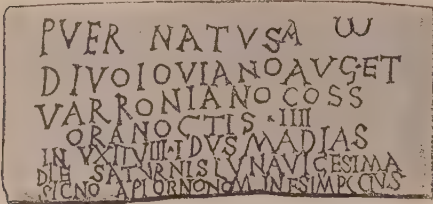 PVER NATVSA ω
DIVOIOVIANOAVG·ET
VARRONIANO COSS
ORANOCTIS · IIII
IN VXITVIII·IDVS MADIAS
DIE SATVRNIS LVNAVIGESIMA
SIGNO APIORNONOM